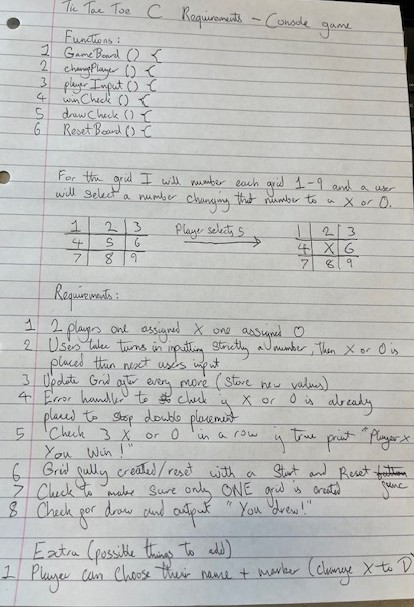 Tic Tac Toe C Requirements - Console game
Functions:
1 GameBoard () {
2 changePlayer () {
3 playerInput () {
4 winCheck () {
5 drawCheck () {
6 ResetBoard () {
For the grid I will number each grid 1-9 and a user
will select a number changing that number to a X or O.
1 2 3 Player selects 5 1 2 3
4 5 6 4 X 6
7 8 9 7 8 9
Requirements:
1 2 players one assigned X one assigned O
2 Users take turns in inputting strictly a number, then X or O is
placed then next users input
3 Update Grid after every move (store new values)
4 Error handler to check if X or O is already
placed to stop double placement
5 Check 3 X or O in a row if True print "Player X
You Win!"
6 Grid fully created/reset with a Start and Reset button
func
7 Check to make sure only ONE grid is created
8 Check for draw and output "You drew!"
Extra (possible things to add)
1 Player can choose their name + marker (change X to D)